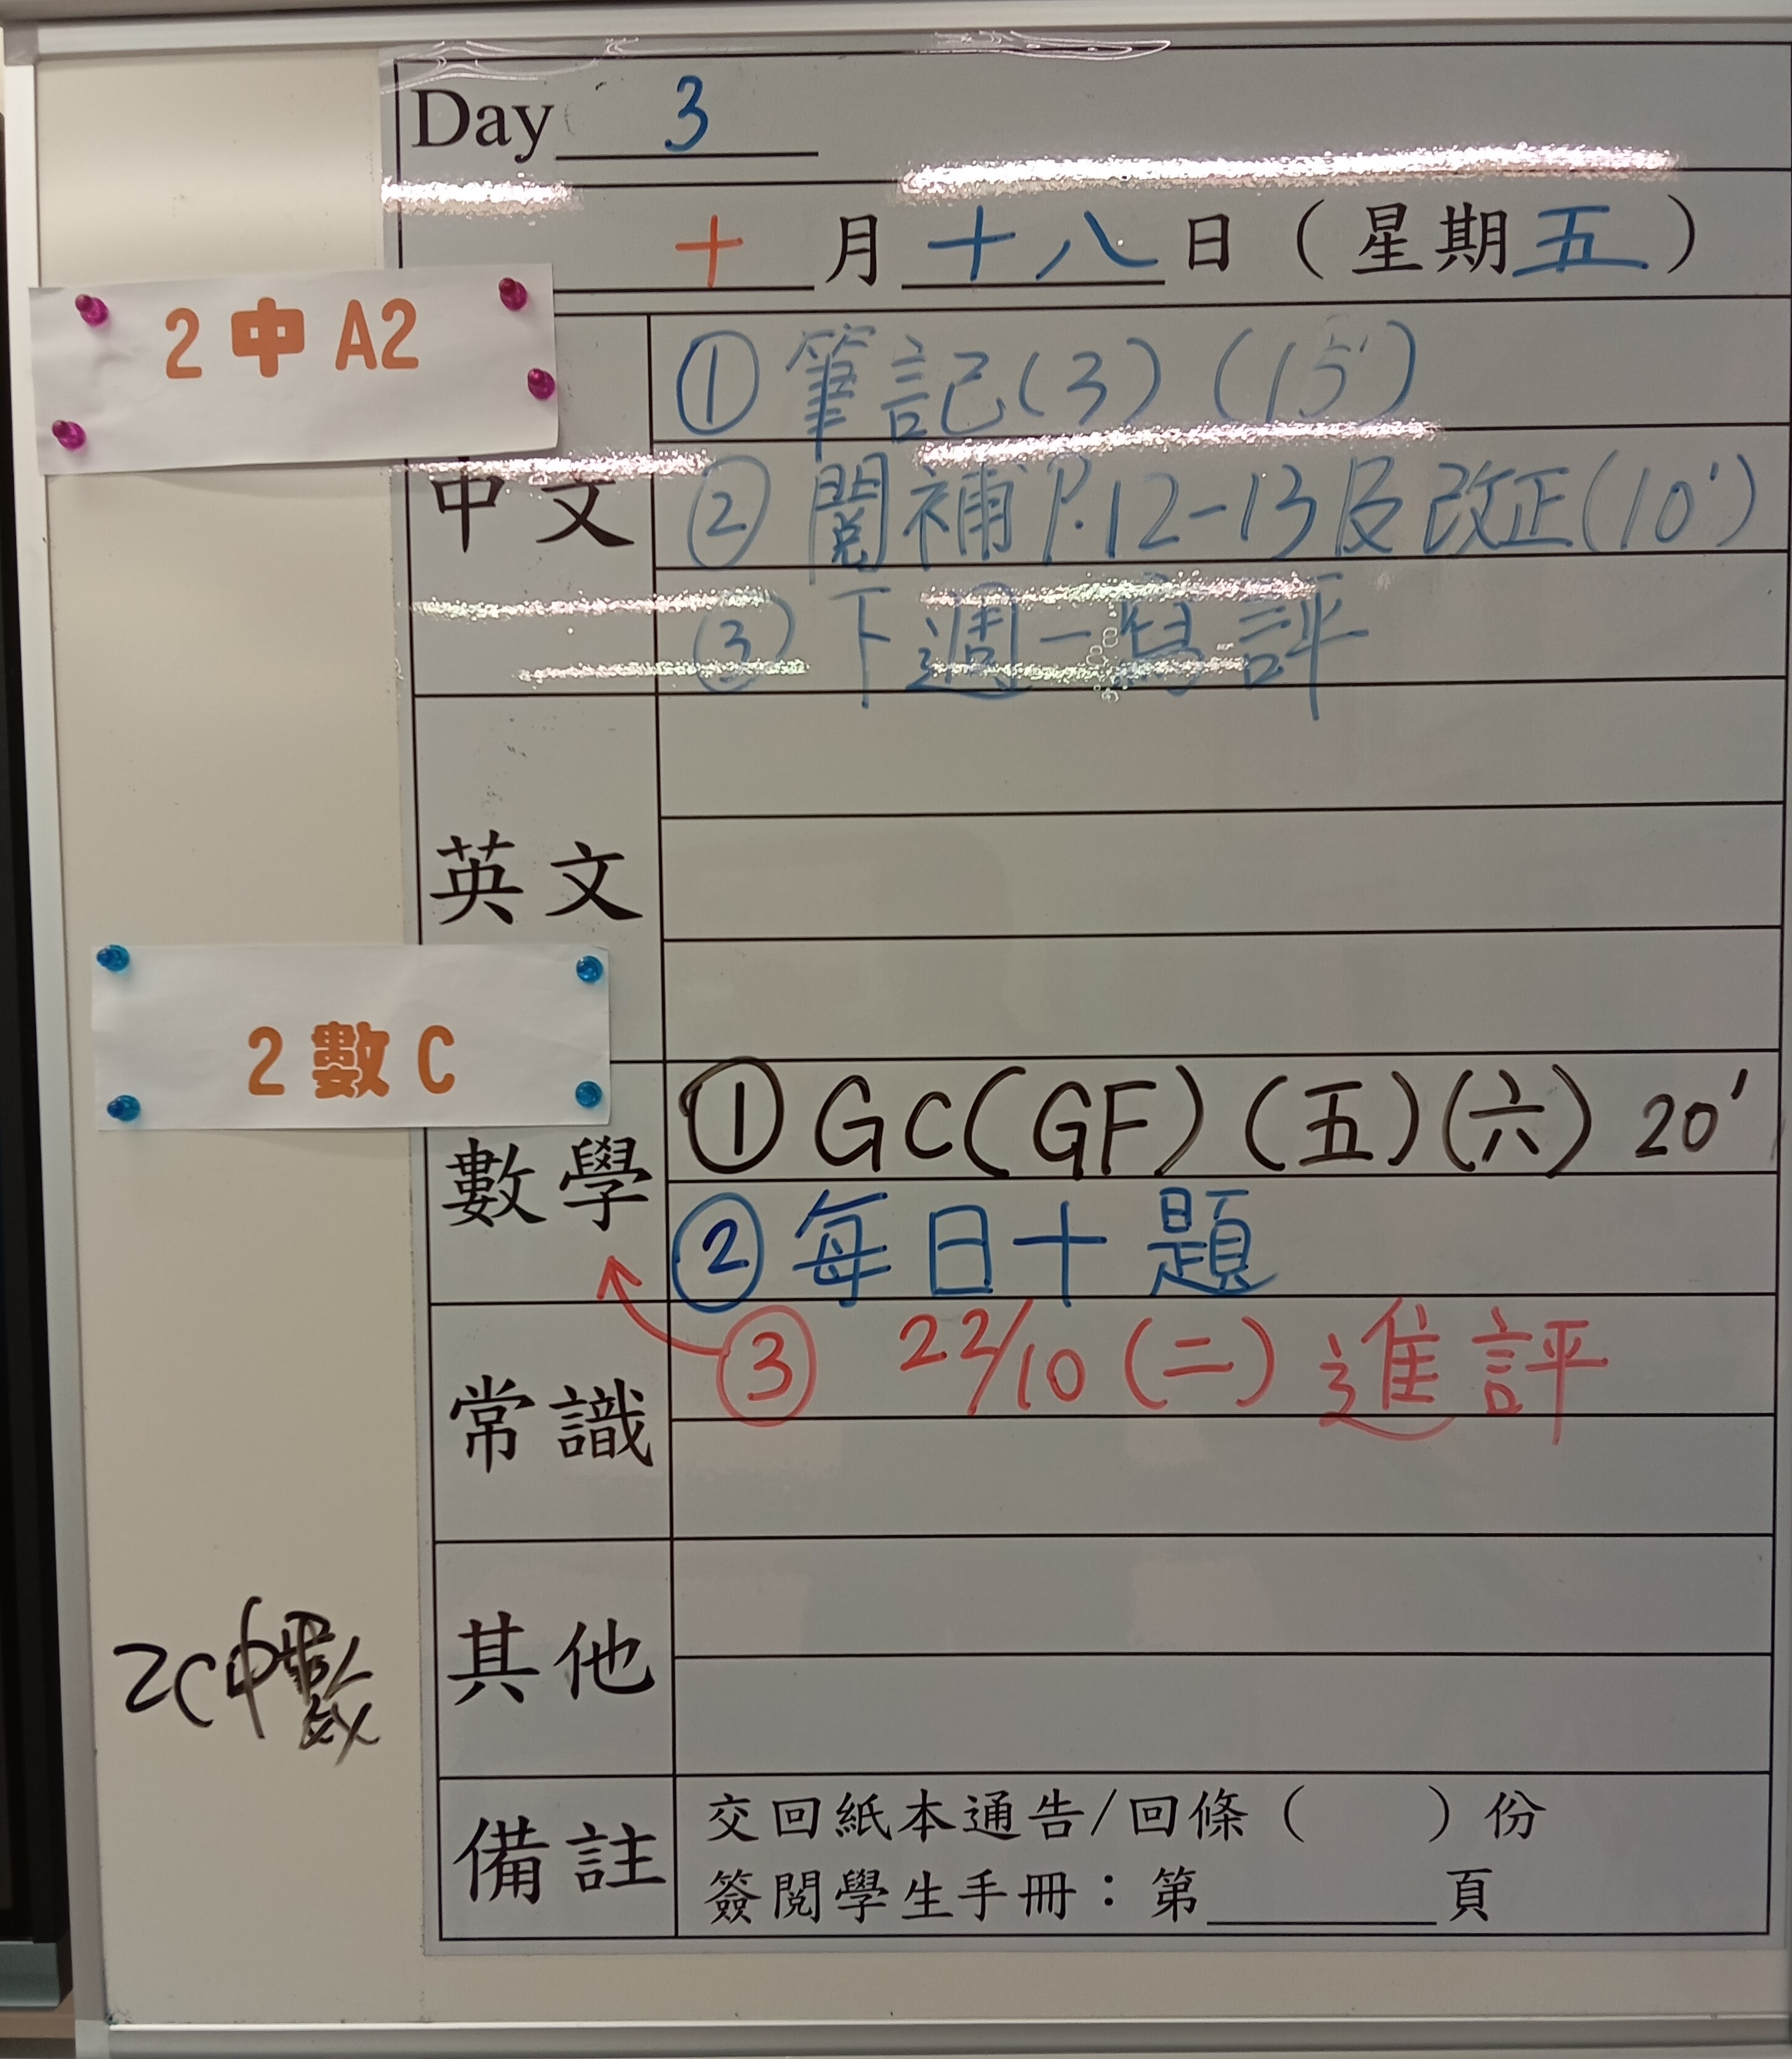 Day 3
十 月 十八 日 ( 星期 五 )
2 中 A2
中文
① 筆記(3) (15')
② 閱補 P.12-13及改正(10')
③ 下週一寫評
英文
2 數 C
數學
① GC(GF) (五)(六) 20'
② 每日十題
常識
③ 22/10 (二) 進評
其他
2C中數
備註
交回紙本通告/回條 ( ) 份
簽閱學生手冊：第 頁